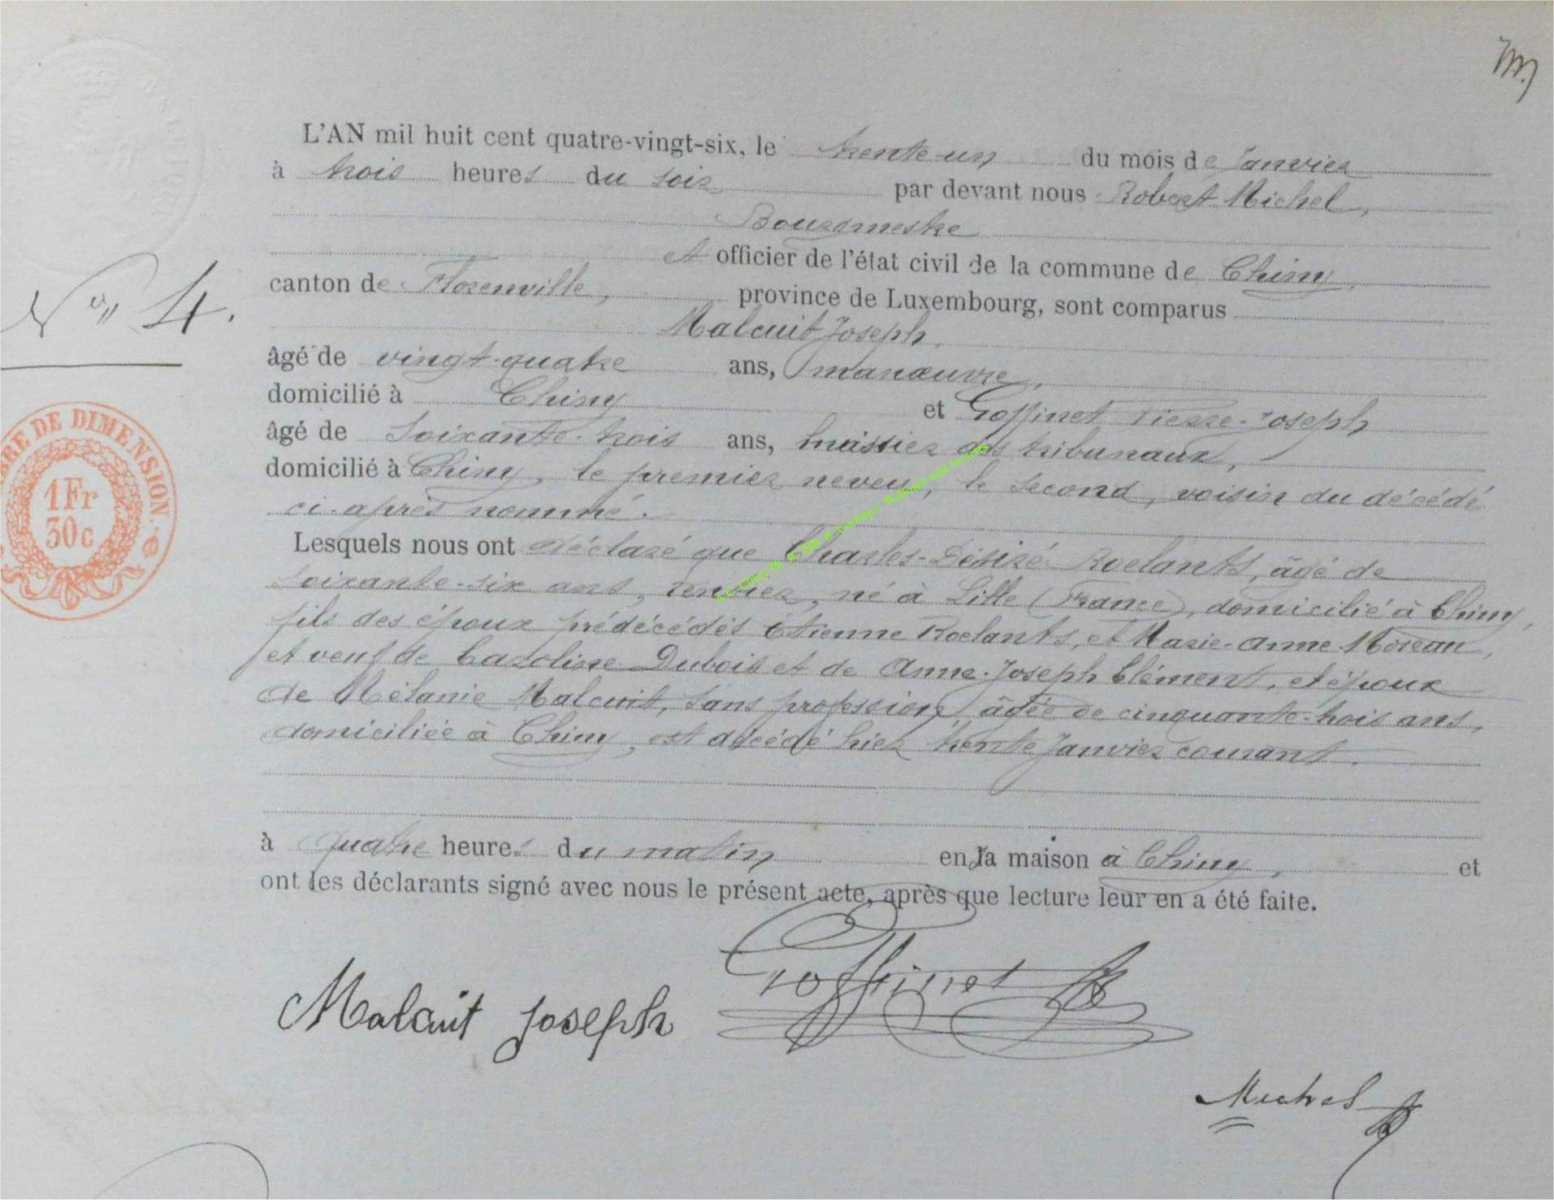 L'AN mil huit cent quatre-vingt-six, le trente-un du mois de Janvier
à trois heures du soir par devant nous Robert Michel,
Bourgmestre
et officier de l'état civil de la commune de Chiny,
canton de Florenville, province de Luxembourg, sont comparus
Malcuit Joseph,
âgé de vingt-quatre ans, manœuvre,
domicilié à Chiny et Goffinet Pierre-Joseph
âgé de soixante-trois ans, huissier des tribunaux,
domicilié à Chiny, le premier neveu, le second, voisin du décédé
ci-après nommé.
Lesquels nous ont déclaré que Charles-Désiré Roelants, âgé de
soixante-six ans, rentier, né à Lille (France), domicilié à Chiny,
fils des époux prédécédés Etienne Roelants, et Marie-Anne Moreau,
et veuf de Caroline Dubois et de Anne-Joseph Clément, et époux
de Mélanie Malcuit, sans profession, âgée de cinquante-trois ans,
domiciliée à Chiny, est décédé hier trente Janvier courant.
à quatre heures du matin en sa maison à Chiny, et
ont les déclarants signé avec nous le présent acte, après que lecture leur en a été faite.
Malcuit Joseph
Goffinet
Michel
N° 4.
TIMBRE DE DIMENSION.
1 Fr
30 c